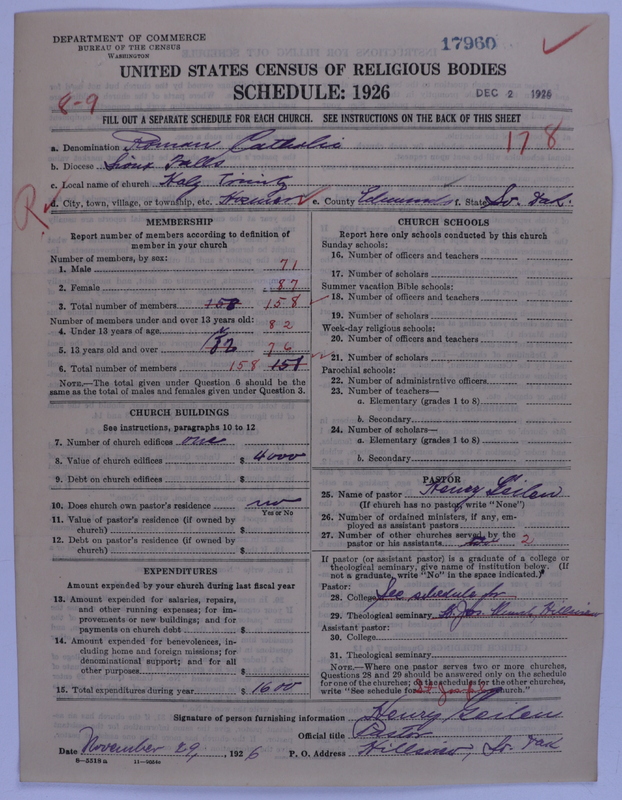 DEPARTMENT OF COMMERCE
BUREAU OF THE CENSUS
WASHINGTON
17960
UNITED STATES CENSUS OF RELIGIOUS BODIES
SCHEDULE: 1926
DEC 2 1926
8-9
FILL OUT A SEPARATE SCHEDULE FOR EACH CHURCH. SEE INSTRUCTIONS ON THE BACK OF THIS SHEET
178
a. Denomination Roman Catholic
b. Diocese Sioux Falls
c. Local name of church Holy Trinity
R.
d. City, town, village, or township, etc. e. County Edmunds f. State So. Dak.
MEMBERSHIP
Report number of members according to definition of member in your church
Number of members, by sex:
1. Male 71
2. Female 87
3. Total number of members 158 158
Number of members under and over 13 years old:
4. Under 13 years of age 82
5. 13 years old and over 76
6. Total number of members 158 158
NOTE.—The total given under Question 6 should be the same as the total of males and females given under Question 3.
CHURCH BUILDINGS
See instructions, paragraphs 10 to 12
7. Number of church edifices one
8. Value of church edifices $ 4000
9. Debt on church edifices $
10. Does church own pastor's residence no
Yes or No
11. Value of pastor's residence (if owned by church) $
12. Debt on pastor's residence (if owned by church) $
EXPENDITURES
Amount expended by your church during last fiscal year
13. Amount expended for salaries, repairs, and other running expenses; for improvements or new buildings; and for payments on church debt $
14. Amount expended for benevolences, including home and foreign missions; for denominational support; and for all other purposes $
15. Total expenditures during year $ 1600
CHURCH SCHOOLS
Report here only schools conducted by this church
Sunday schools:
16. Number of officers and teachers
17. Number of scholars
Summer vacation Bible schools:
18. Number of officers and teachers
19. Number of scholars
Week-day religious schools:
20. Number of officers and teachers
21. Number of scholars
Parochial schools:
22. Number of administrative officers
23. Number of teachers—
a. Elementary (grades 1 to 8)
b. Secondary
24. Number of scholars—
a. Elementary (grades 1 to 8)
b. Secondary
PASTOR
25. Name of pastor Henry Geilen
(If church has no pastor, write "None")
26. Number of ordained ministers, if any, employed as assistant pastors
27. Number of other churches served by the pastor or his assistants 2
If pastor (or assistant pastor) is a graduate of a college or theological seminary, give name of institution below. (If not a graduate, write "No" in the space indicated.)
Pastor:
28. College See schedule for
29. Theological seminary St. Jos. Church, Hillsview
Assistant pastor:
30. College
31. Theological seminary
NOTE.—Where one pastor serves two or more churches, Questions 28 and 29 should be answered only on the schedule for one of the churches; in the schedules for the other churches, write "See schedule for St. Joseph church."
Signature of person furnishing information Henry Geilen
Official title Pastor
Date November 29, 1926 P. O. Address Hillsview, So. Dak
8—5518a 11—9034